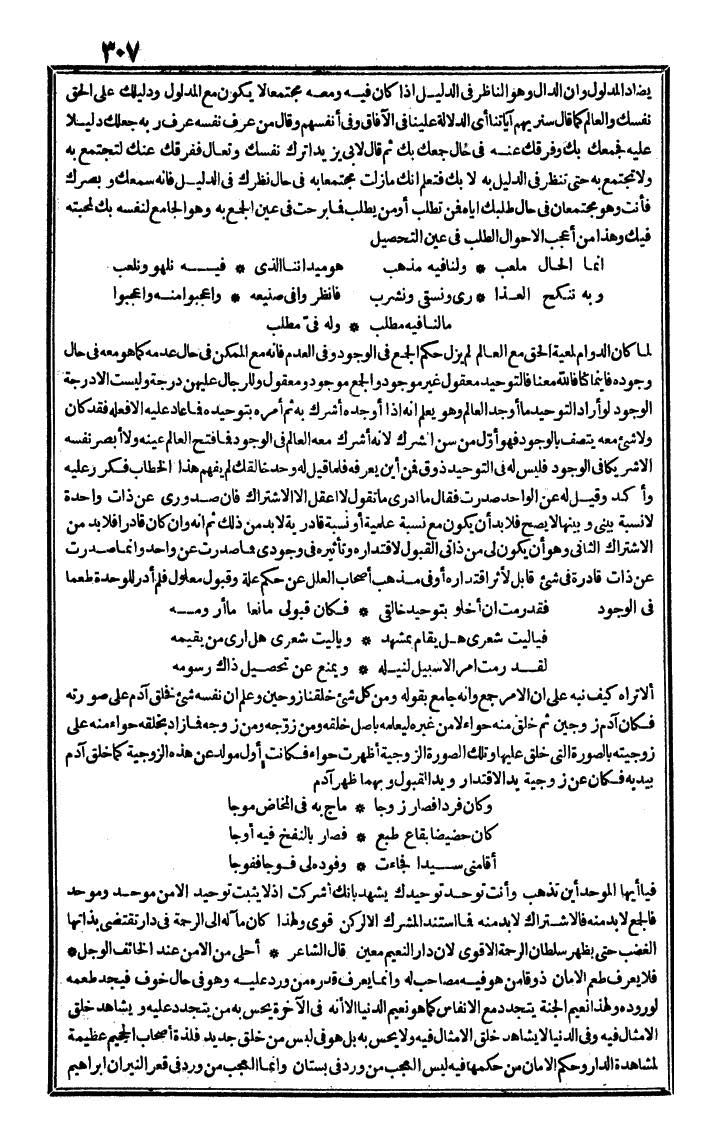 ٣٠٧
يضاد المدلول وان الدال وهو الناظر فى الدليل اذا كان فيه ومعه مجتمعا لا يكون مع المدلول ودليلك على الحق
نفسك والعالم كما قال سنريهم آياتنا أى الدلالة علينا فى الآفاق وفى أنفسهم وقال من عرف نفسه عرف ربه جعلك دليلا
عليه فجمعك بك وفرقك عنه فى حال جعك بك ثم قال لابى يزيد اترك نفسك وتعال ففرقك عنك لتجتمع به
ولا تجتمع به حتى تنظر فى الدليل به لا بك فتعلم انك مازلت مجتمعا به فى حال نظرك فى الدليل فانه سمعك وبصرك
فأنت وهو مجتمعان فى حال طلبك اياه فمن تطلب أو من يطلب فما برحت فى عين الجمع به وهو الجامع لنفسه بك لمحبته
فيك وهذا من أعجب الاحوال الطلب فى عين التحصيل
انما الحال ملعب * ولنا فيه مذهب هو ميداننا الذى * فيه نلهو ونلعب
وبه ننكح العذا * رى ونسقى ونشرب فانظروا فى صنيعه * واعجبوا منه واعجبوا
مالنا فيه مطلب * وله فىّ مطلب
لما كان الدوام لمعية الحق مع العالم لم يزل حكم الجمع فى الوجود وفى العدم فانه مع الممكن فى حال عدمه كما هو معه فى حال
وجوده فاينما كنا فالله معنا فالتوحيد معقول غير موجود والجمع موجود ومعقول وللرجال عليهن درجة وليست الا درجة
الوجود لو أراد التوحيد ما أوجد العالم وهو يعلم انه اذا أوجده أشرك به ثم أمره بتوحيده فما عاد عليه الا فعله فقد كان
ولا شئ معه يتصف بالوجود فهو أوّل من سن الشرك لانه أشرك معه العالم فى الوجود فما فتح العالم عينه ولا أبصر نفسه
الا شريكا فى الوجود فليس له فى التوحيد ذوق فمن أين يعرفه فلما قيل له وحد خالقك لم يفهم هذا الخطاب فكرر عليه
وأكد وقيل له عن الواحد صدرت فقال ما ادرى ما تقول لا اعقل الا الاشتراك فان صدورى عن ذات واحدة
لا نسبة بينى وبينها لا يصح فلابد أن يكون مع نسبة علمية أو نسبة قادرية لابد من ذلك ثم انه وان كان قادرا فلابد من
الاشتراك الثانى وهو أن يكون لى من ذاتى القبول لاقتداره وتأثيره فى وجودى فما صدرت عن واحد وانما صدرت
عن ذات قادرة فى شئ قابل لأثر اقتداره أو فى مذهب أصحاب العلل عن حكم علة وقبول معلول فلم أدر للوحدة طعما
فى الوجود فقد رمت ان أخلو بتوحيد خالقى * فكان قبولى مانعا ما أرومه
فياليت شعرى هل يقام بمشهد * وياليت شعرى هل ارى من يقيمه
لقد رمت امرا لا سبيل لنيله * ويمنع عن تحصيل ذاك رسومه
ألا تراه كيف نبه على ان الامر جمع وانه جامع بقوله ومن كل شئ خلقنا زوجين وعلم ان نفسه شئ فخلق آدم على صورته
فكان آدم زوجين ثم خلق منه حواء لا من غيره ليعلمه باصل خلقه ومن زوّجه ومن زوجه فما زاد بخلقه حواء منه على
زوجيته بالصورة التى خلق عليها وتلك الصورة الزوجية أظهرت حواء فكانت أول مولد عن هذه الزوجية كما خلق آدم
بيديه فكان عن زوجية يد الاقتدار ويد القبول وبهما ظهر آدم
وكان فردا فصار زوجا * ماج به فى المخاض موجا
كان حضيضا بقاع طبع * فصار بالنفخ فيه أوجا
أقامنى سيدا فجاءت * وفوده لى فوجا ففوجا
فيا أيها الموحد أين تذهب وأنت توحد توحيدك يشهد بانك أشركت اذ لا يثبت توحيد الا من موحد وموحد
فالجمع لابد منه فالاشتراك لابد منه فما استند المشرك الا لركن قوى ولهذا كان مآله الى الرحمة فى دار تقتضى بذاتها
الغضب حتى يظهر سلطان الرحمة الاقوى لان دار النعيم معين قال الشاعر * أحلى من الامن عند الخائف الوجل *
فلا يعرف طعم الامان ذوقا من هو فيه مصاحب له وانما يعرف قدره من ورد عليه وهو فى حال خوف فيجد طعمه
لوروده ولهذا نعيم الجنة يتجدد مع الانفاس كما هو نعيم الدنيا الا أنه فى الآخرة يحس به من يتجدد عليه ويشاهد خلق
الامثال فيه وفى الدنيا لا يشاهد خلق الامثال فيه ولا يحس به بل هو فى لبس من خلق جديد فلذة أصحاب الجحيم عظيمة
لمشاهدة الدار وحكم الامان من حكمها فيه ليس العجب من ورد فى بستان وانما العجب من ورد فى قعر النيران ابراهيم